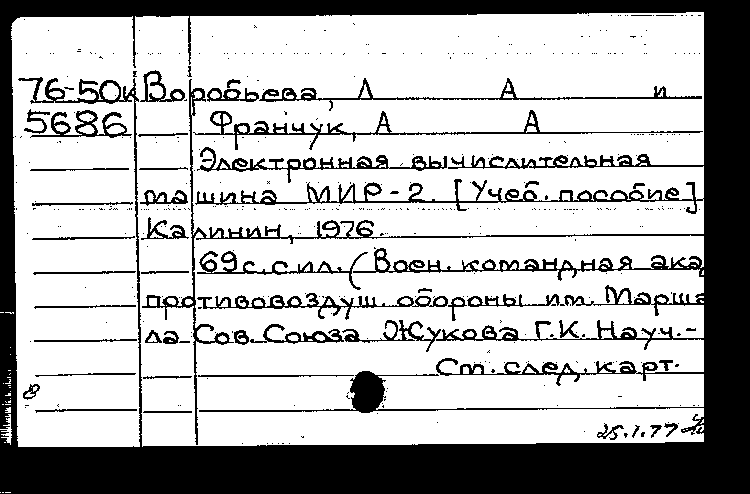 76-50к Воробьева, Л А и
5686 Франчук, А А
Электронная вычислительная
машина МИР-2. [Учеб. пособие]
Калинин, 1976.
69с. с ил. (Воен. командная ака
противовоздуш. обороны им. Марша
ла Сов. Союза Жукова Г.К. Науч.-
См. след. карт.
8
25.1.77